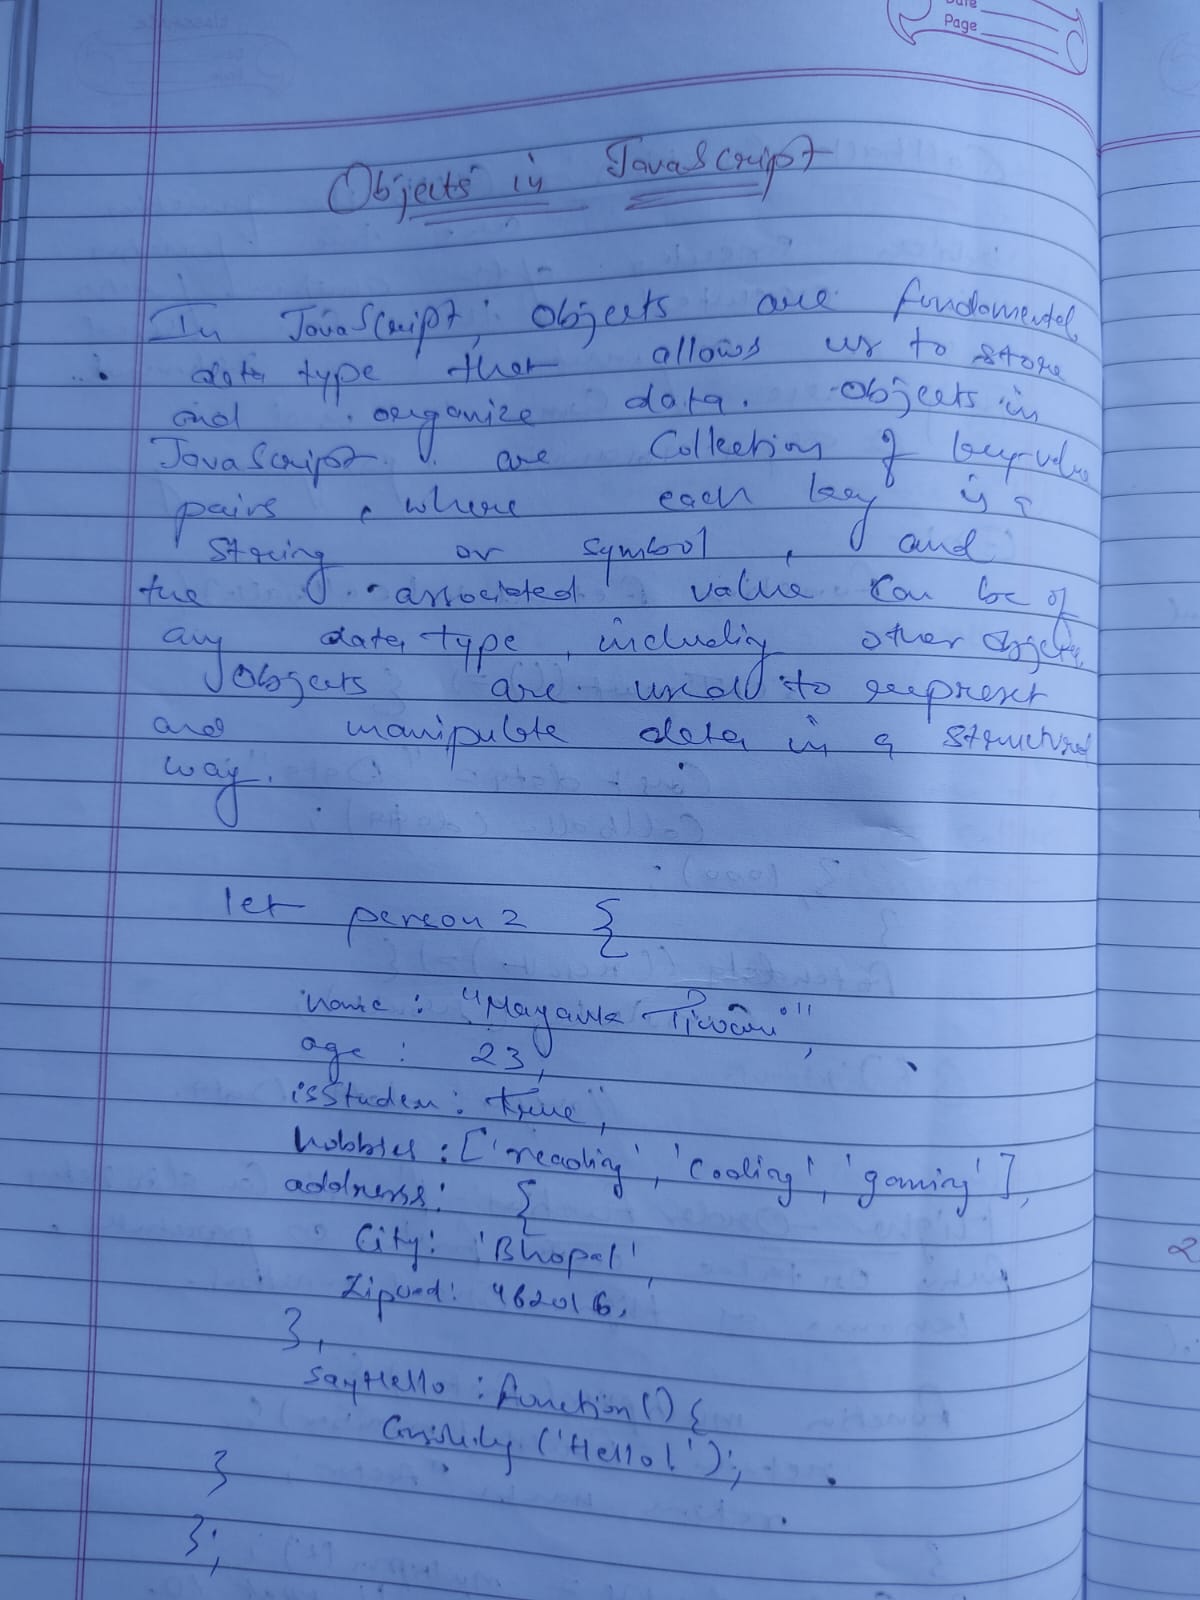 Date
Page
Objects in JavaScript
In JavaScript, objects are fundamental
data type that allows us to store
and organize data. Objects in
JavaScript are Collection of key-value
pairs, where each key is a
string or symbol, and
the associated value can be of
any data type, including other objects,
Objects are used to represent
and manipulate data in a structured
way.
let person = {
name : "Mayank Tiwari",
age : 23,
isStuden : true,
hobbies : ['reading', 'cooding', 'gaming'],
address : {
City : 'Bhopal',
Zipcod : 462016,
},
sayHello : function () {
('Hello!');
}
};
2